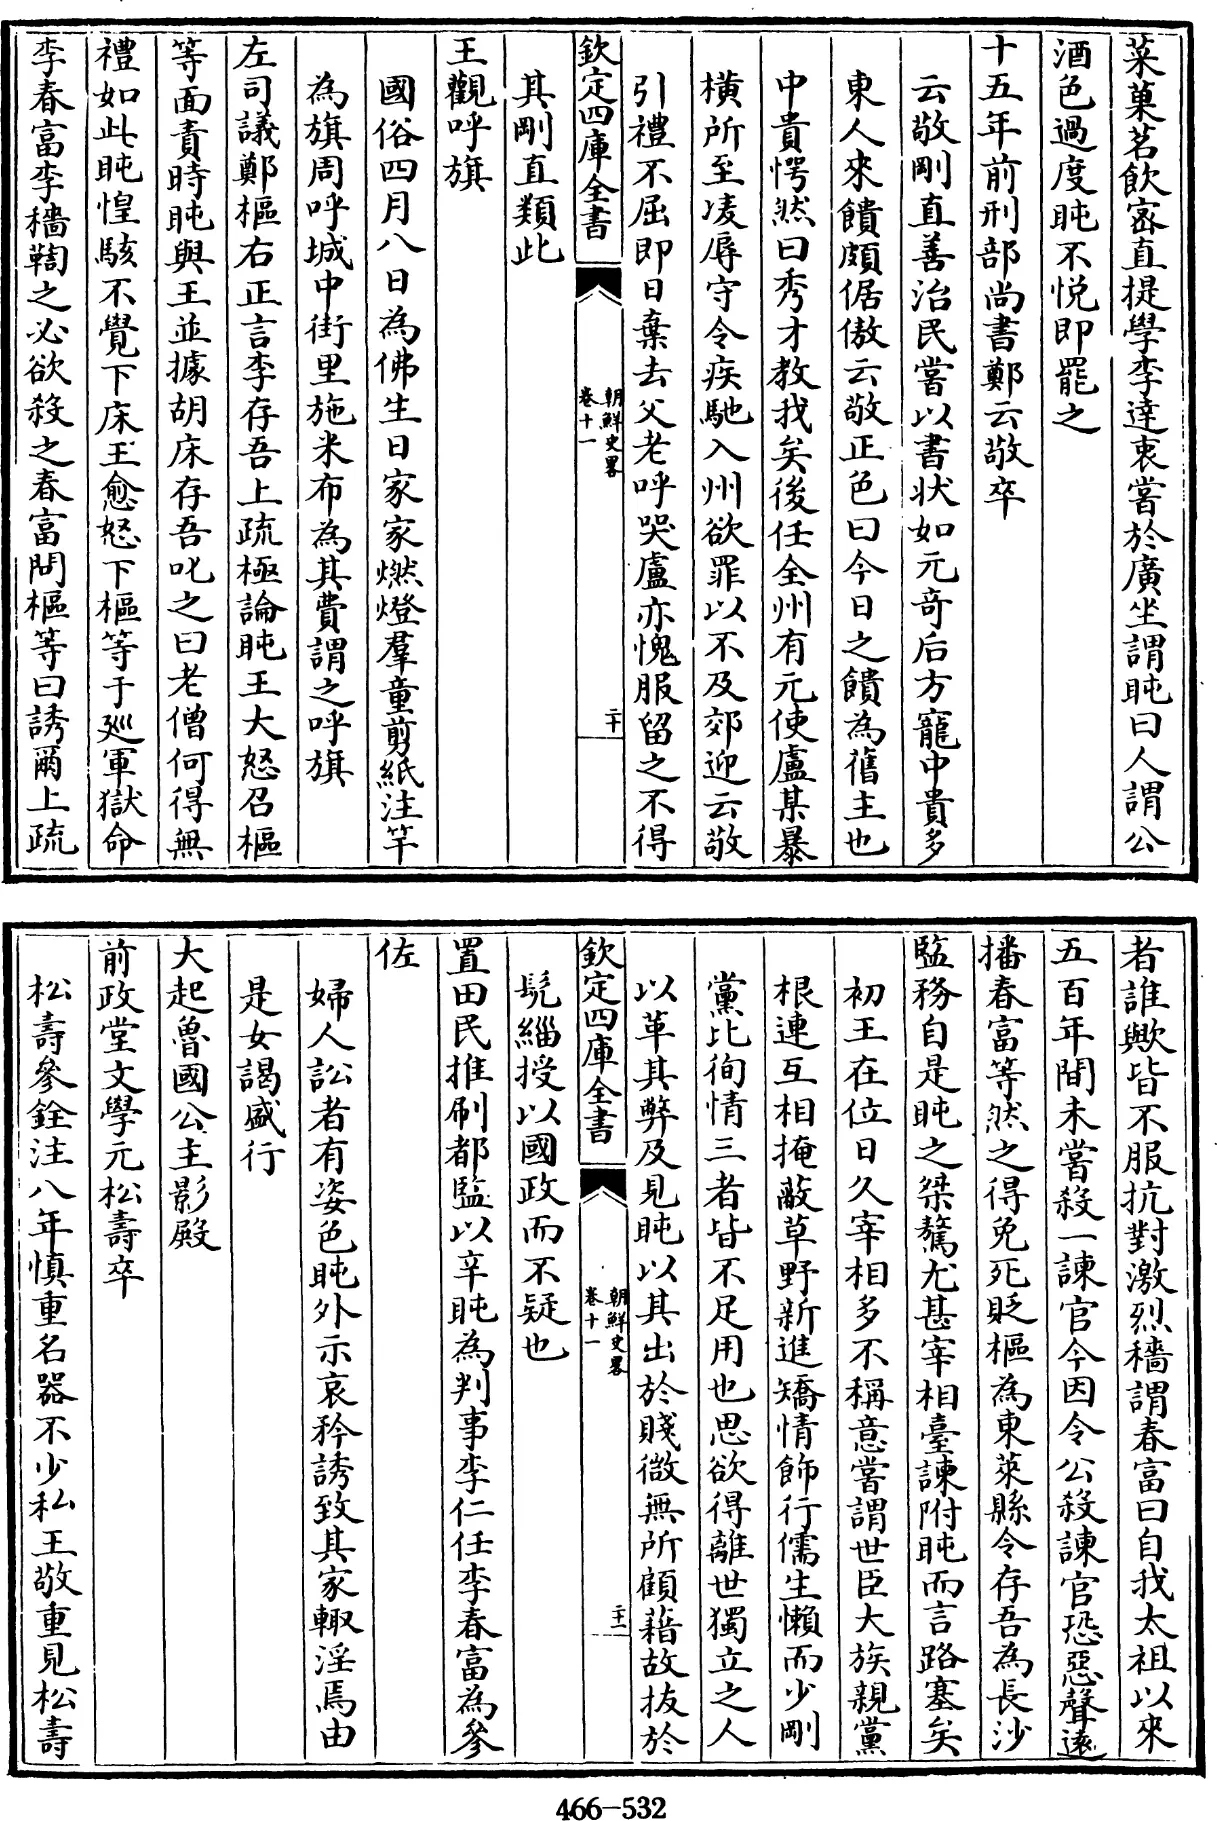 菜菓茗飲密直提學李達衷嘗於廣坐謂旽曰人謂公
酒色過度旽不悅即罷之
十五年前刑部尚書鄭云敬卒
云敬剛直善治民嘗以書狀如元竒后方寵中貴多
東人來饋頗倨傲云敬正色曰今日之饋為舊主也
中貴愕然曰秀才教我矣後任全州有元使盧某暴
橫所至凌辱守令疾馳入州欲罪以不及郊迎云敬
引禮不屈即日棄去父老呼哭盧亦愧服留之不得
欽定四庫全書
朝鮮史畧
卷十一
二十
其剛直類此
王觀呼旗
國俗四月八日為佛生日家家燃燈羣童剪紙注竿
為旗周呼城中街里施米布為其費謂之呼旗
左司議鄭樞右正言李存吾上疏極論旽王大怒召樞
等面責時旽與王並據胡床存吾叱之曰老僧何得無
禮如此旽惶駭不覺下床王愈怒下樞等于廵軍獄命
李春富李穡鞫之必欲殺之春富問樞等曰誘爾上疏
者誰歟皆不服抗對激烈穡謂春富曰自我太祖以來
五百年間未嘗殺一諫官今因令公殺諫官恐惡聲遠
播春富等然之得免死貶樞為東萊縣令存吾為長沙
監務自是旽之桀驁尤甚宰相臺諫附旽而言路塞矣
初王在位日久宰相多不稱意嘗謂世臣大族親黨
根連互相掩蔽草野新進矯情飾行儒生懶而少剛
黨比徇情三者皆不足用也思欲得離世獨立之人
以革其弊及見旽以其出於賤微無所顧藉故拔於
欽定四庫全書
朝鮮史畧
卷十一
二十一
髠緇授以國政而不疑也
置田民推刷都監以辛旽為判事李仁任李春富為參
佐
婦人訟者有姿色旽外示哀矜誘致其家輙淫焉由
是女謁盛行
大起魯國公主影殿
前政堂文學元松壽卒
松壽參銓注八年慎重名器不少私王敬重見松壽
466-532